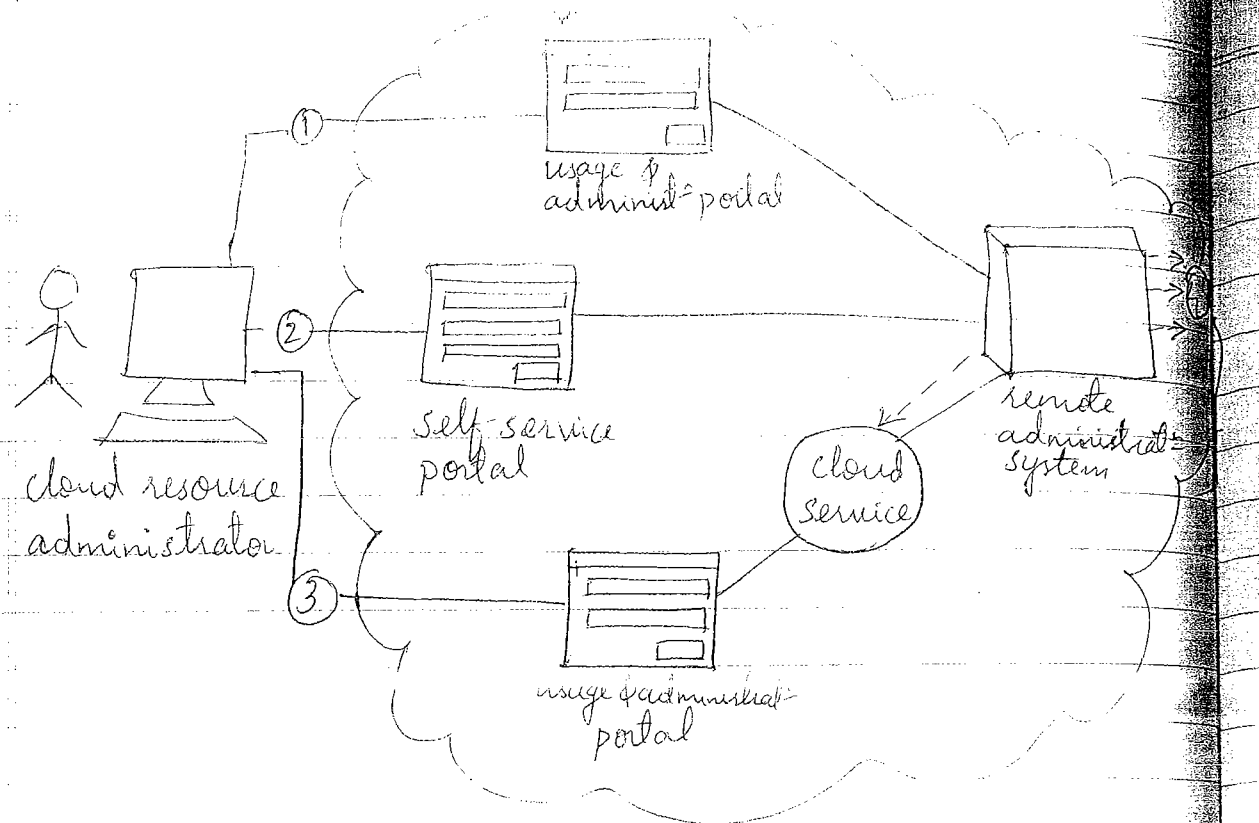 1
usage &
administ= portal
2
self-service
portal
cloud resource
administrator
remote
administrat=
system
cloud
service
3
usage & administrat=
portal